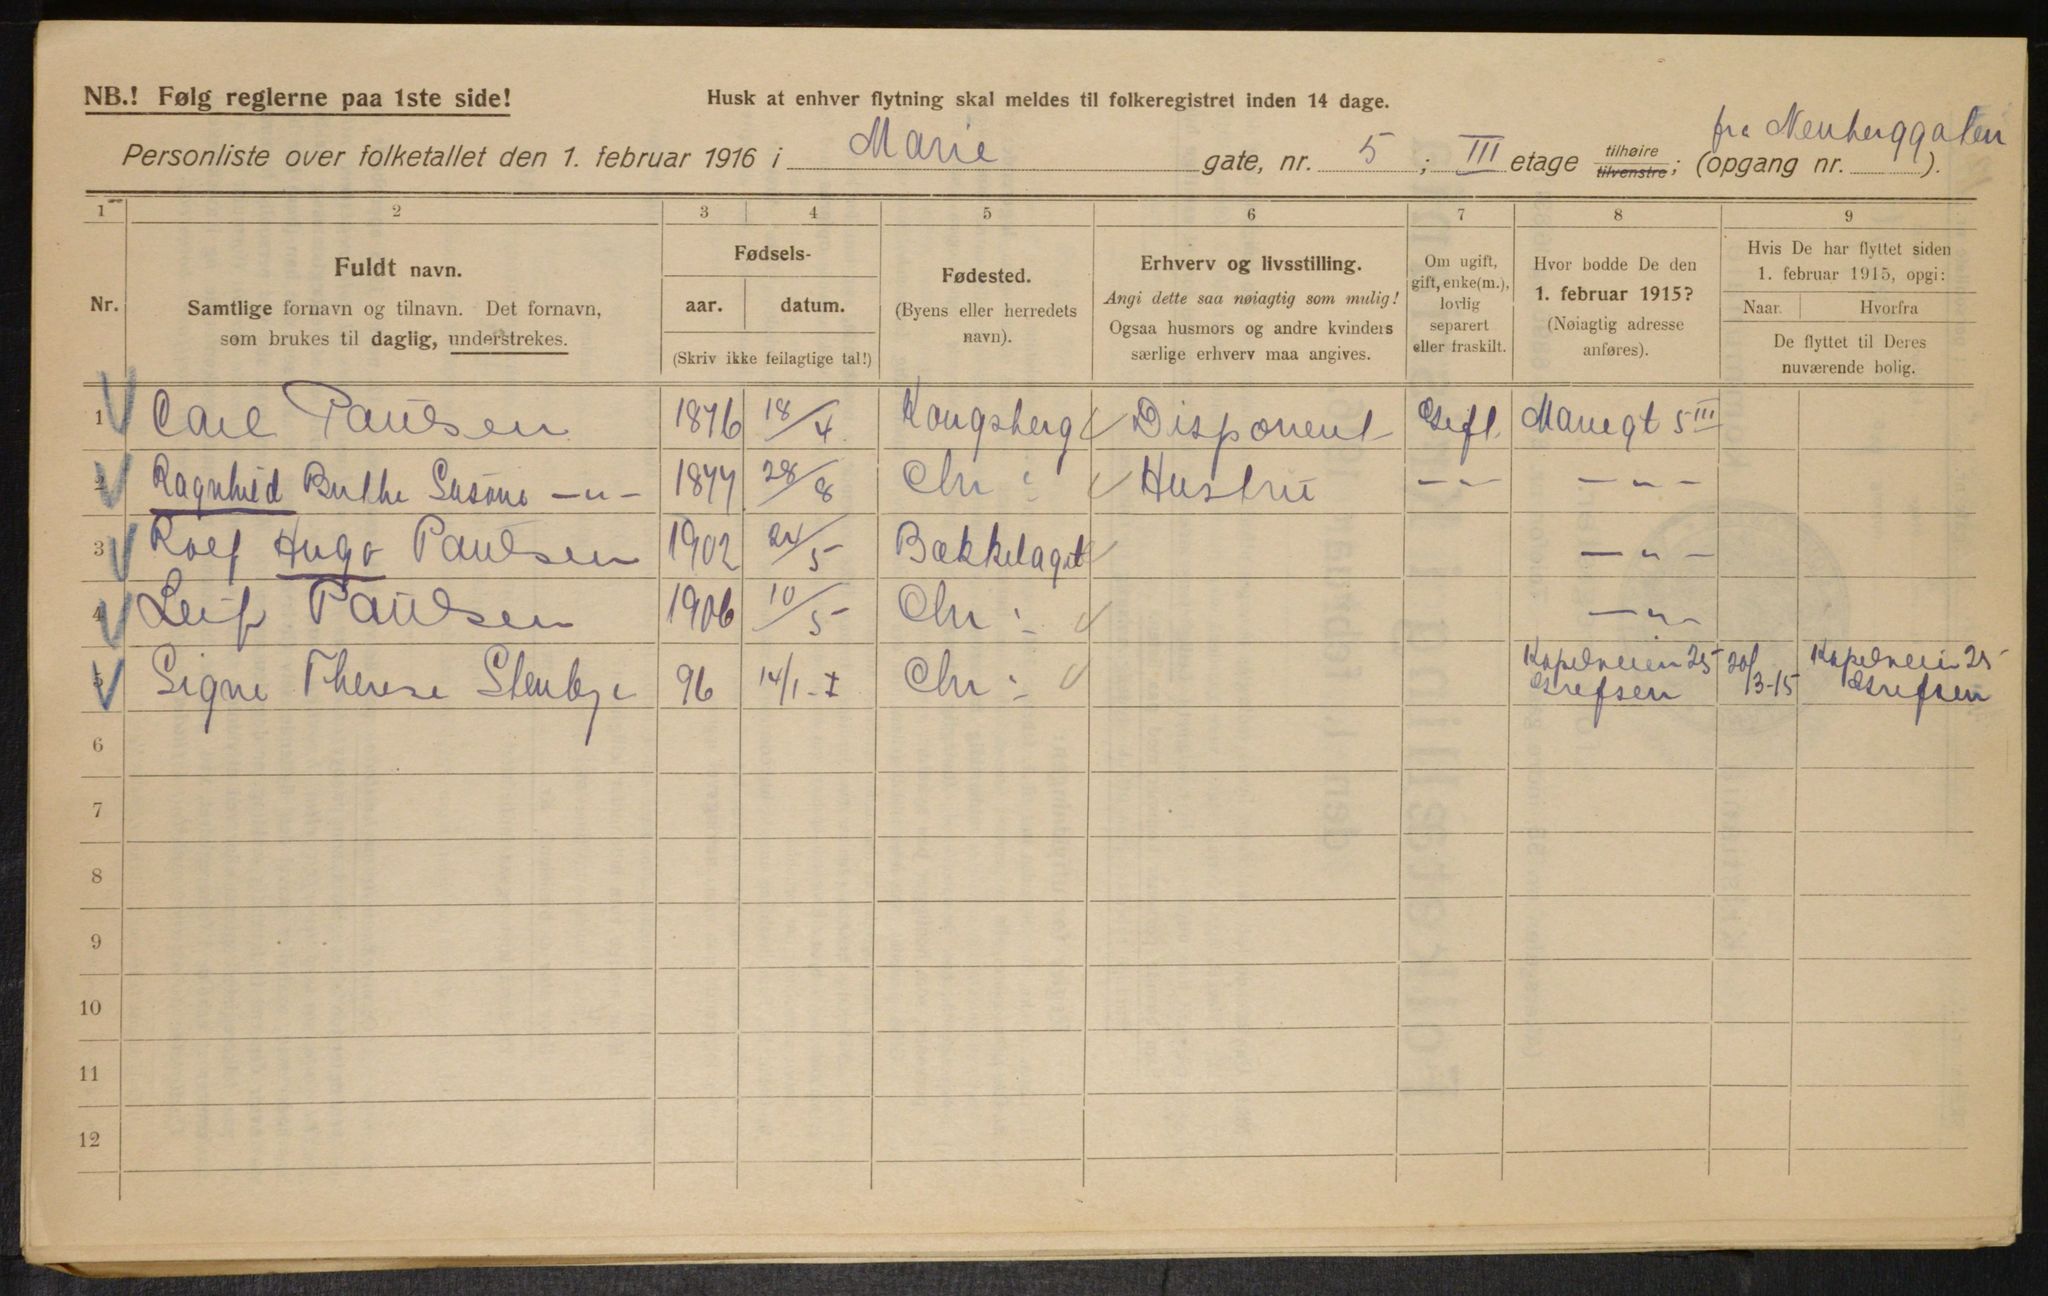 NB.! Følg reglerne paa 1ste side!
Husk at enhver flytning skal meldes til folkeregistret inden 14 dage.
fra Neuberggaten
Personliste over folketallet den 1. februar 1916 i Marie gate, nr. 5 ; III etage tilhøire tilvenstre; (opgang nr. ).
1 2 3 4 5 6 7 8 9
Nr.
Fuldt navn.
Samtlige fornavn og tilnavn. Det fornavn,
som brukes til daglig, understrekes.
Fødsels-
aar. datum.
(Skriv ikke feilagtige tal!)
Fødested.
(Byens eller herredets
navn).
Erhverv og livsstilling.
Angi dette saa nøiagtig som mulig!
Ogsaa husmors og andre kvinders
særlige erhverv maa angives.
Om ugift,
gift, enke(m.),
lovlig
separert
eller fraskilt.
Hvor bodde De den
1. februar 1915?
(Nøiagtig adresse
anføres).
Hvis De har flyttet siden
1. februar 1915, opgi:
Naar. Hvorfra
De flyttet til Deres
nuværende bolig.
1 Carl Paulsen 1876 18/4 Kongsberg Disponent Gift Mariegt 5 III
2 Ragnhild Buthe Susane -"- 1877 28/8 Chr: Hustru -"- -"-
3 Rolf Hugo Paulsen 1902 24/5 Bækkelaget -"-
4 Leif Paulsen 1906 10/5 Chr: -"-
5 Signe Therese Stenbye 96 14/1 Chr: Kapelveien 25 Grefsen 20/3-15 Kapelveien 25 Grefsen
6
7
8
9
10
11
12